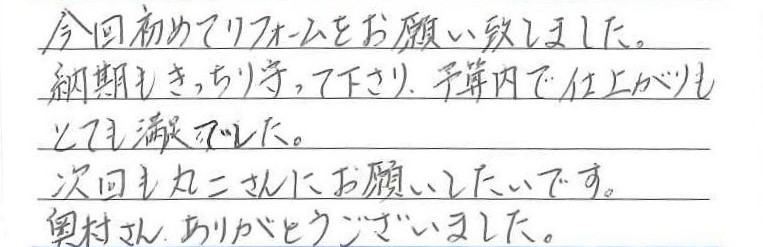 今回初めてリフォームをお願い致しました。
納期もきっちり守って下さり、予算内で仕上がりも
とても満足でした。
次回も丸二さんにお願いしたいです。
奥村さん、ありがとうございました。